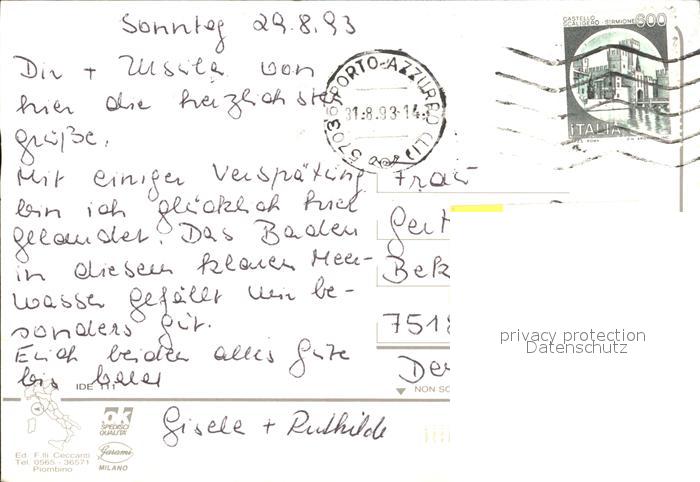 Sonntag 29.8.93
Dir + Ursula von
hier die herzlichsten
grüße.
Mit einiger Verspätung
bin ich glücklich hier
gelandet. Das Baden
in diesem klaren Meer-
wasser gefällt mir be-
sonders gut.
Euch beiden alles Gute
bis bald
Gisela + Ruthilde
CASTELLO
SCALIGERO-SIRMIONE
600
ITALIA
57036 PORTO-AZZURRO (LI)
31.8.93-14
Frau
Bek
7518
privacy protection
Datenschutz
IDE 111
NON SC
OK
SPEDISCI
QUALITÀ
Garami
MILANO
Ed. F.lli Ceccanti
Tel. 0565 - 36571
Piombino